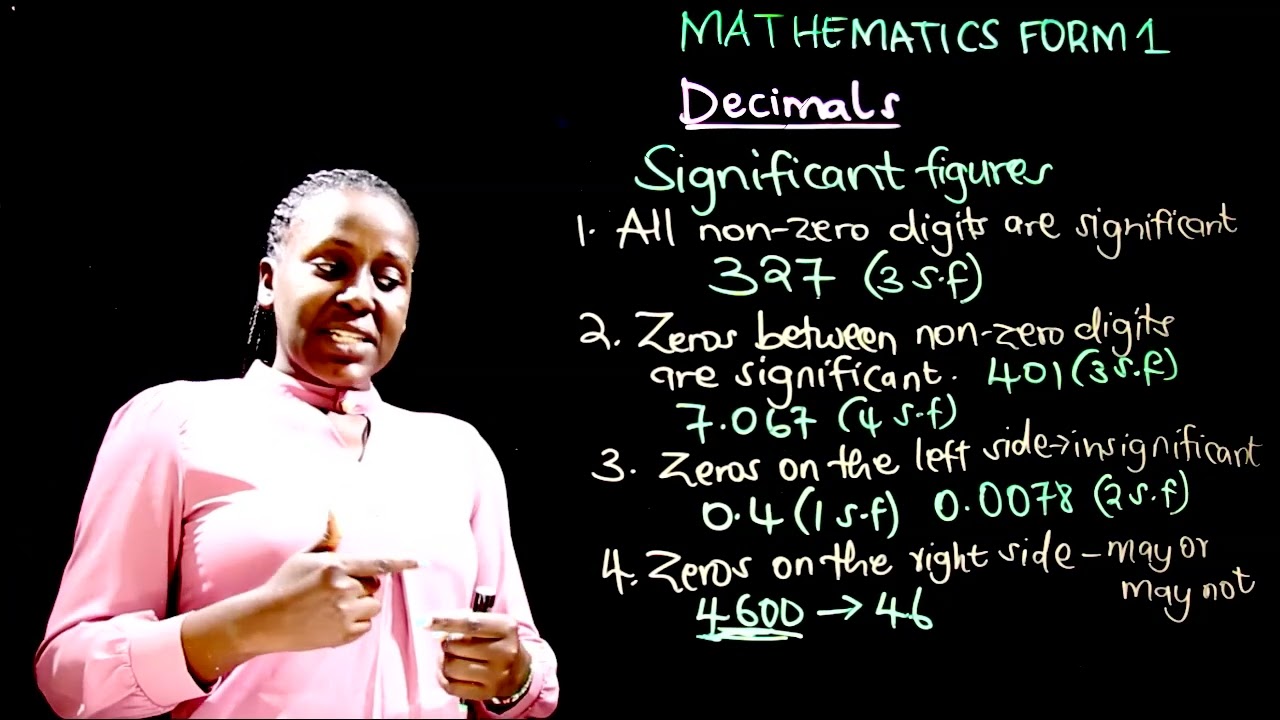 MATHEMATICS FORM 1
Decimals
Significant figures
1. All non-zero digits are significant
327 (3 s.f)
2. Zeros between non-zero digits
are significant. 401 (3 s.f)
7.067 (4 s.f)
3. Zeros on the left side→insignificant
0.4 (1 s.f) 0.0078 (2 s.f)
4. Zeros on the right side – may or
may not
4600 → 46